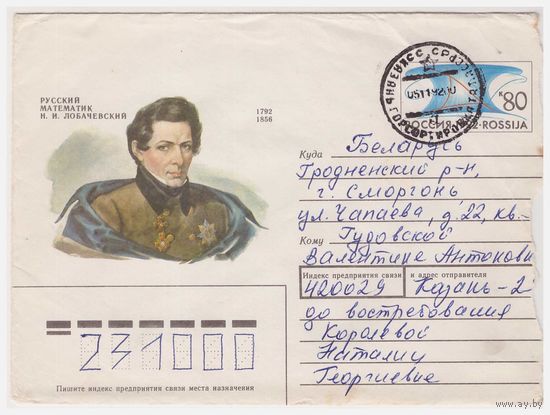 РУССКИЙ
МАТЕМАТИК
Н. И. ЛОБАЧЕВСКИЙ
1792
1856
051192
К 80
РОССИЯ 92-ROSSIJA
Куда Беларусь
Гродненский р-н,
г. Сморгонь
ул. Чапаева, д. 22, кв.-
Кому Гудовской
Валентине Антонови
Индекс предприятия связи и адрес отправителя
420029 Казань-2
до востребования
Королевой
Наталии
Георгиевне
231000
Пишите индекс предприятия связи места назначения
www.ay.by